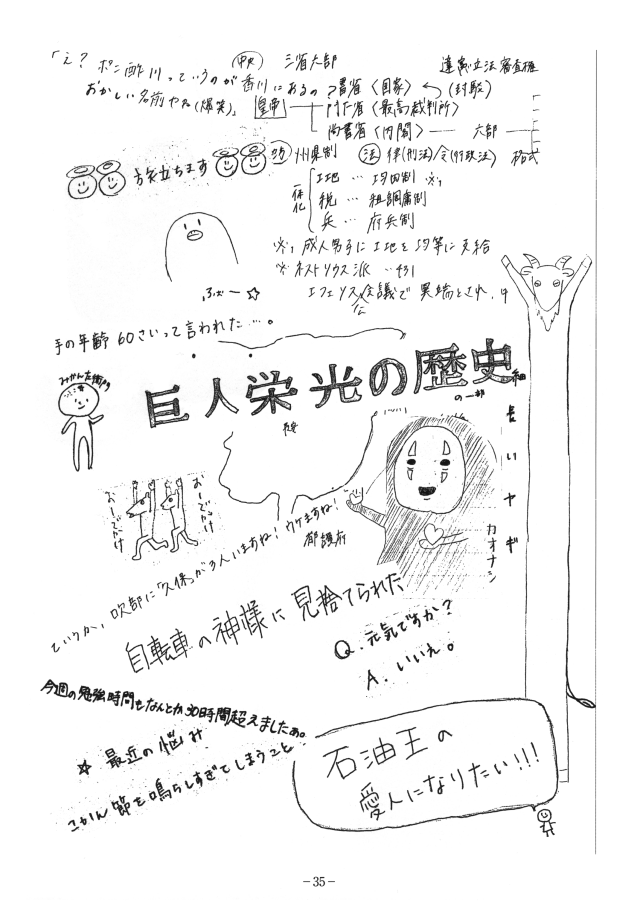 「え？ ポン酢川っていうのが香川にあるの？
おかしい名前やね(爆笑)」
三省六部
違憲立法審査権
書省〈国家〉
(封駁)
皇帝
門下省〈最高裁判所〉
尚書省〈内閣〉 六部
旅立ちます
州県制
法 律(刑法)/令(行政法) 格式
一体化
土地 … 均田制 ※1
税 … 租調庸制
兵 … 府兵制
※1 成人男子に土地を均等に支給
※ ネストリウス派 …431
エフェソス公会議で異端とされ、中
ふぉー☆
手の年齢60さいって言われた…。
みかん左衛門
巨人栄光の歴史
の一部
長いヤギ
カオナシ
おーでかけ
おーでかけ
都護府
ていうか、吹部に「久保」が3人いますね！ウケますね！
自転車の神様に見捨てられた
Q. 元気ですか？
A. いいえ。
今週の勉強時間もなんとか30時間超えましたぁ。
☆ 最近の悩み
こかん節を鳴らしすぎてしまうこと
石油王の
愛人になりたい!!!
－35－